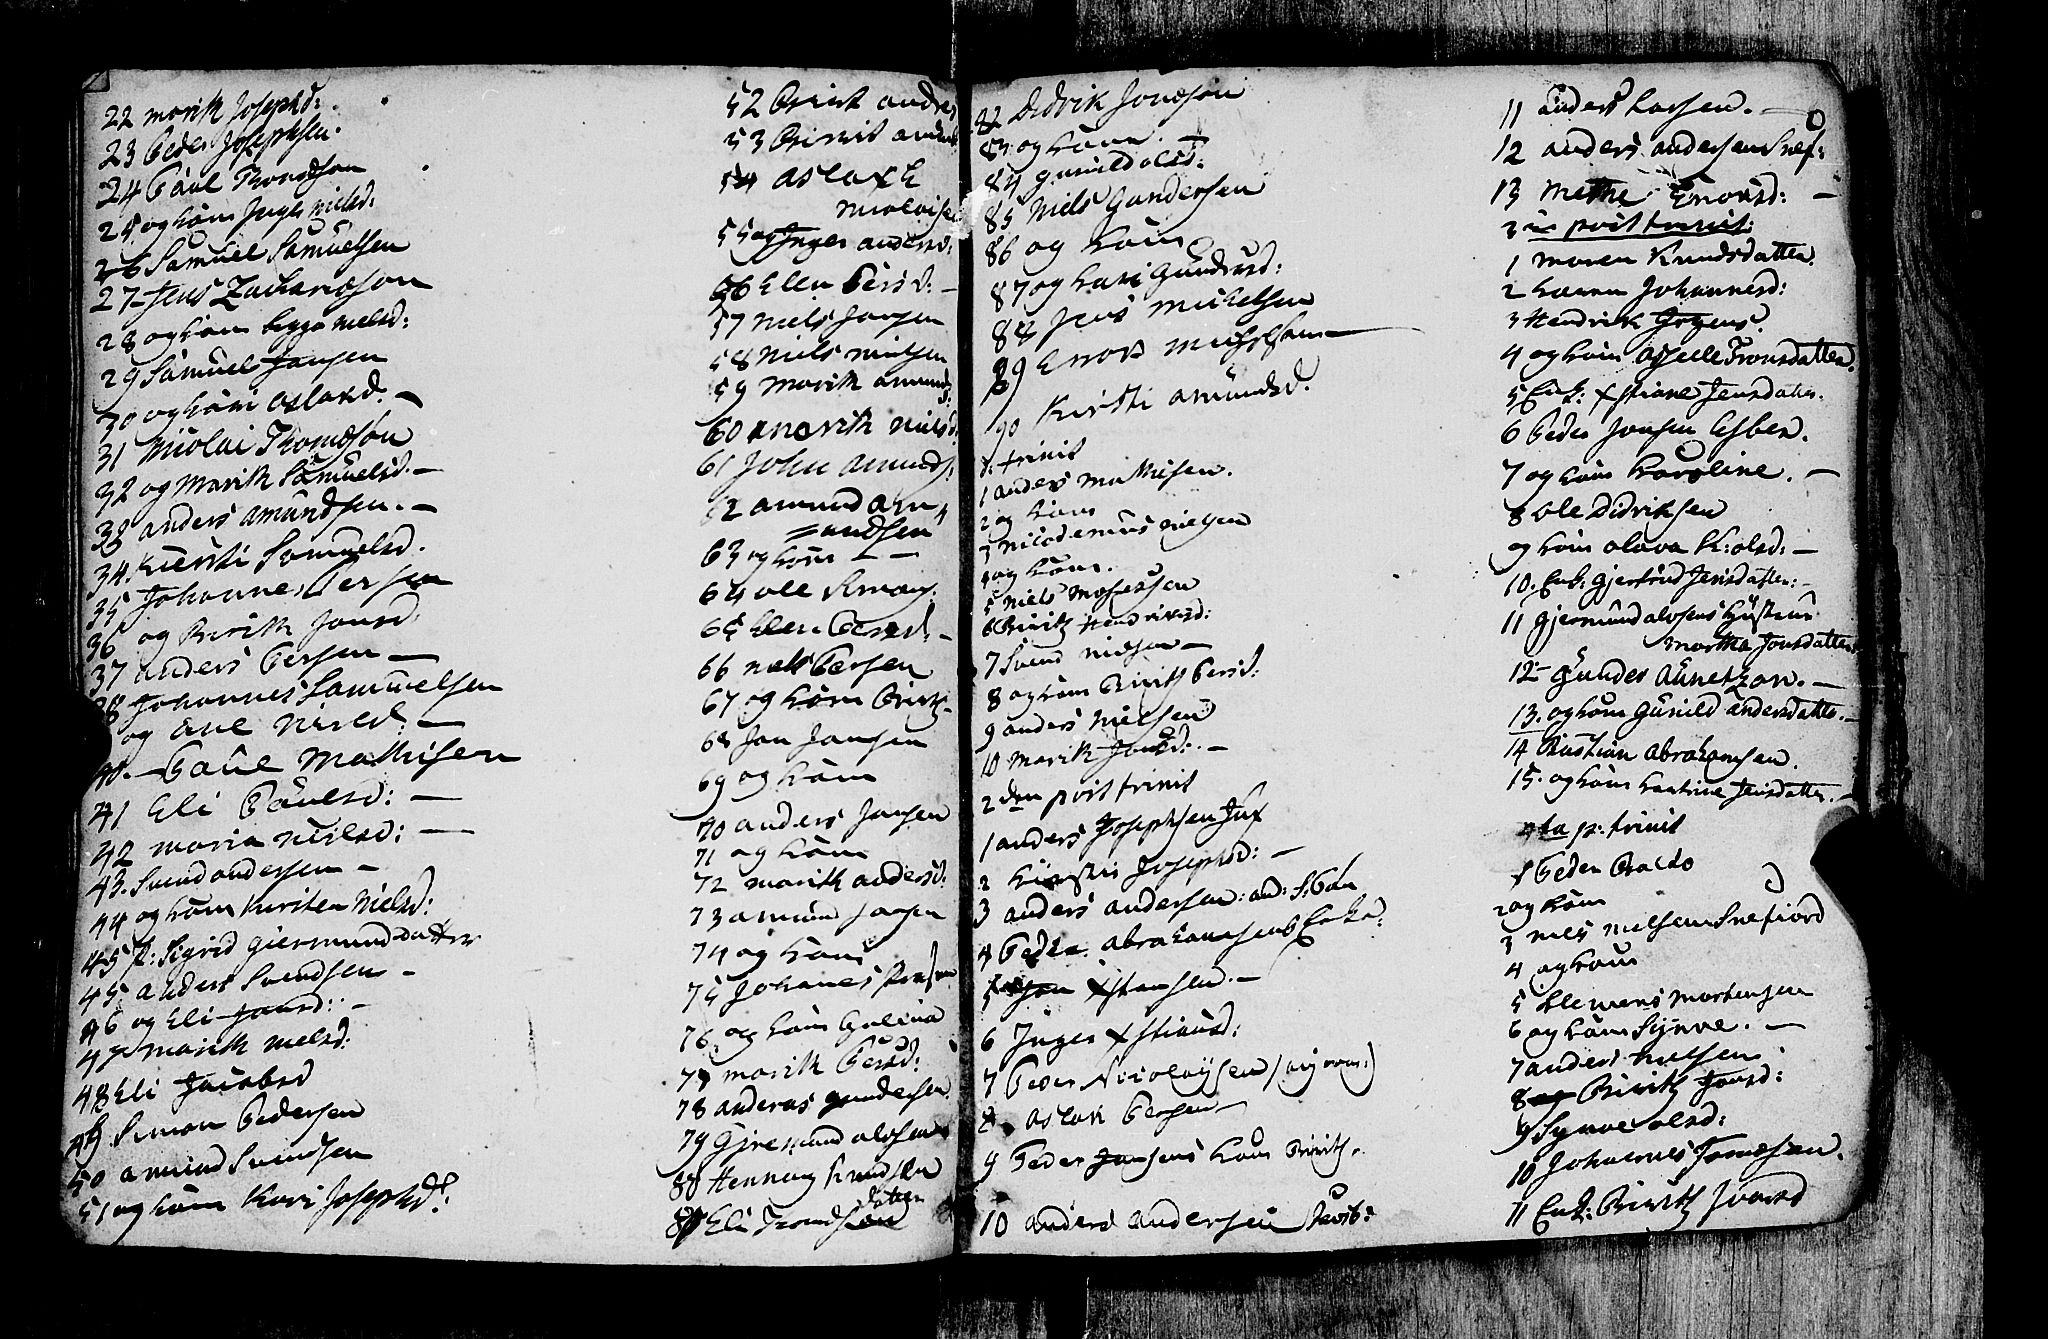 22 marith Josephsd:
23 Peder Josephsen.
24 Paul Thomdson
25 og kone Inge nielsd:
26 Samuel Samuelsen
27 Jens Zacharison
28 og kone nielsd:
29 Samuel Jansen
30 og kone aslaxd. —
31 Nicolai Thomdson
32 og Marith Samuelsd. —
33 anders amundsen. —
34 Kiersti Samuelsd.
35 Johannes Persen
36 og Birith Jonsd.
37 anders Persen —
38 Johannes Samuelsen
og ane Nielsd: —
40. — Paul Mathisen
41 Eli Paulsd: —
42 maria nielsd: —
43. Svend andersen —
44 og kone Kirsten Nielsd:
45 Sigrid giermunddatter
45 anders Svendsen —
46 og Eli Jonsd: —
47 marith nielsd:
48 Eli Jacobsd
49 Simon Pedersen
50 amund Svendsen
51 og kone Kari Josephsd:
52 Birit anders
53 Birrit
54 aslax E
Nicolaise
55 og Inger andersd:
56 Ellen Persd: —
57 Niels Jansen
58 Niels nielsen
59 Marith amunds
60 marith nielsd:
61 John amunds:
62 amund am
undsen
63 og kone —
64 ole
65 Ellen Persd: —
66 niels Persen
67 og kone Birith
68 Jon Jansen
69 og kone
70 anders Jansen
71 og kone
72 marith andersd:
73 amund Jansen
74 og kone
75 Johanes
76 og kone Gulina
77 marith Persd:
78 anders gundersen
79 Gjremund olsen
80 Henning Knudsen
81 Eli Tromds datter
82 Didrik Jonsson
83 og kone.
84 gunild olsd:
85 Niels Gundersen
86 og kone
87 og kari Gundersd:
88 Jens Michelsen
89 Enok Michelsen —
90 Kirsti amundsd.
trinit
1 anders Mathisen.
2 og kone
3 nicodemus nielsen
4 og kone.
5 niels Mosessen
6 Birith Hendriksd:
7 Svend nielsen —
8 og kone Birith Persd:
9 anders Nielsen
10 Marith Jonsd: —
2den post trinit
1 anders Josephsen
2 Kirsti Josephsd: —
3 anders andersen
4 Peder abrahamsens Enke:
5 xstansen. —
6 Inger xstiansd:
7 Peder Nicolaysen
8 aslak Persen —
9 Peder Jansens kone Birith.
10 anders andersen
11 anders Larsen. —
12 anders andersen Snef:
13 Methe Enoksd: —
3die post trinit:
1 maren Knudsdatter.
2 karen Johannesd:
3 Hendrik
4 og kone Tronsdatter.
5 Enk: xstiane Jensdatter.
6 Peder Jonsen
7 og kone karoline. —
8 ole Didriksen
og kone olava K:olsd: —
10. Enk: gjertrud Jensdatter: —
11 gjermund olsens hustru
martha Jonsdatter
12 — gunder —
13. og kone gunild andersdatter. —
14 Bastian abrahamsen.
15. og kone kathrine Jensdatter. —
4ta p: trinit
1 Peder
2 og kone
3 niels nielsen Snefiord
4 og kone
5 klemens mortensen
6 og kone Synve. —
7 anders nielsen
8 og Birith Jonsd:
9 Synve olsd:
10 Johannes Tomesen.
11 Enk: Birith Ivarsd